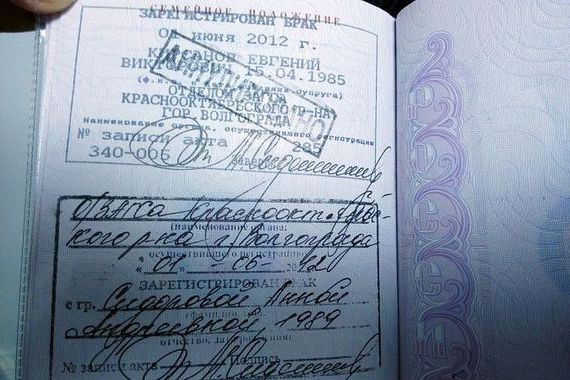 СЕМЕЙНОЕ ПОЛОЖЕНИЕ
ЗАРЕГИСТРИРОВАН БРАК
01 июня 2012 г.
ЕВГЕНИЙ
15.04.1985
супруга)
ОТДЕЛОМ
КРАСНООКТЯБРЬСКОГО Р-НА
ГОР. ВОЛГОГРАДА
Наименование органа, осуществившего регистрацию
№ записи акта 285
340-006
ОЗАГСа Краснооктябрьс-
кого р-на г. Волгограда
(наименование органа:
осуществившего регистрацию)
"01" - 06 - 2012
ЗАРЕГИСТРИРОВАН БРАК
с гр. Сидоровой Анной
Андреевной, 1989
отчество, дата
№ записи акта Подпись